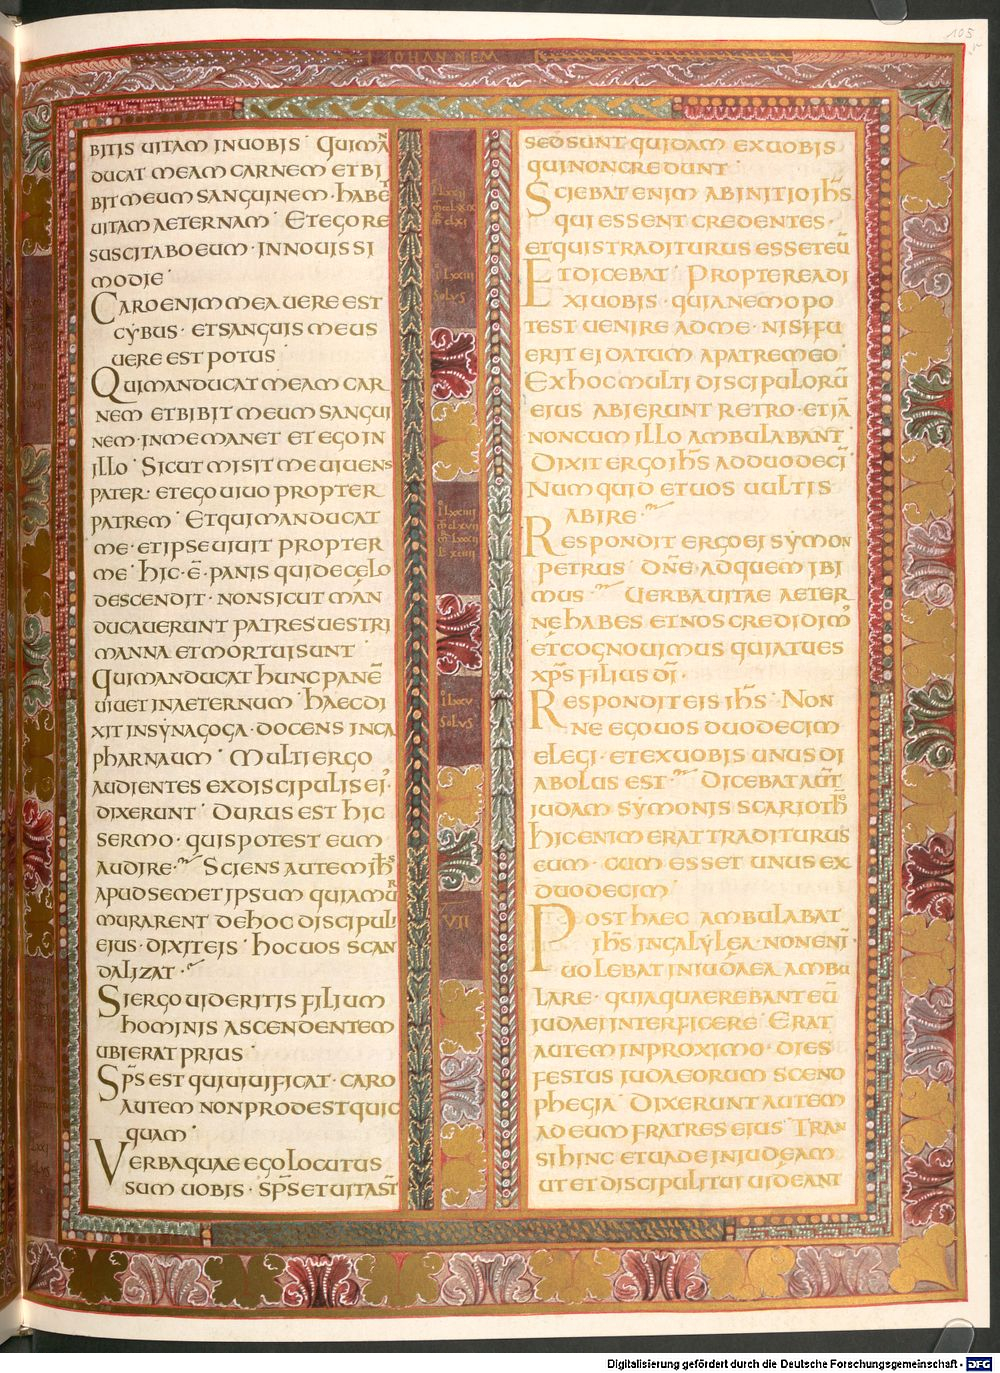 105
IOHANNEM
BITIS UITAM INUOBIS· QUIMĀ
DUCAT MEAM CARNEM ETBI
BIT MEUM SANGUINEM· HABĒ
UITAM AETERNAM· ET EGO RE
SUSCITABO EUM· IN NOUISSI
MO DIE·
CARO ENIM MEA UERE EST
CẎBUS· ET SANGUIS MEUS
UERE EST POTUS·
QUI MANDUCAT MEAM CAR
NEM ET BIBIT MEUM SANGUI
NEM· IN ME MANET ET EGO IN
ILLO· SICUT MISIT ME UIUENS
PATER· ET EGO UIUO PROPTER
PATREM· ET QUI MANDUCAT
ME· ET IPSE UIUIT PROPTER
ME· HIC· Ē· PANIS QUI DE CĘLO
DESCENDIT· NON SICUT MAN
DUCAUERUNT PATRES UESTRI
MANNA ET MORTUI SUNT
QUI MANDUCAT HUNC PANĒ
UIUET IN AETERNUM· HAEC DI
XIT IN SẎNAGOGA· DOCENS IN CA
PHARNAUM· MULTI ERGO
AUDIENTES EX DISCIPULIS EI᾽·
DIXERUNT· DURUS EST HIC
SERMO· QUIS POTEST EUM
AUDIRE· SCIENS AUTEM IH̄S
APUD SEMET IPSUM QUIA MUR
MURARENT DE HOC DISCIPULI
EIUS· DIXIT EIS· HOC UOS SCAN
DALIZAT·
SI ERGO UIDERITIS FILIUM
HOMINIS ASCENDENTEM
UBI ERAT PRIUS·
SP̄S EST QUI UIUIFICAT· CARO
AUTEM NON PRODEST QUIC
QUAM·
VERBA QUAE EGO LOCUTUS
SUM UOBIS· SP̄S ET UITA S̄T
I LXXIII
SOLUS
I LXXIIII
M̄ CLXVII
M̄ LXXXII
L̄ XCIIII
I LXXV
SOLUS
VII
SED SUNT QUIDAM EX UOBIS
QUI NON CREDUNT·
SCIEBAT ENIM AB INITIO IH̄S
QUI ESSENT CREDENTES·
ET QUIS TRADITURUS ESSET EŪ
ET DICEBAT· PROPTEREA DI
XI UOBIS· QUIA NEMO PO
TEST UENIRE AD ME· NISI FU
ERIT EI DATUM A PATRE MEO·
EX HOC MULTI DISCIPULORŪ
EIUS ABIERUNT RETRO· ET IĀ
NON CUM ILLO AMBULABANT·
DIXIT ERGO IH̄S AD DUODECĪ
NUM QUID ET UOS UULTIS
ABIRE·
RESPONDIT ERGO EI SẎMON
PETRUS· DN̄E· AD QUEM IBI
MUS· UERBA UITAE AETER
NĘ HABES ET NOS CREDIDIM᾽
ET COGNOUIMUS QUIA TU ES
XP̄S FILIUS DĪ·
RESPONDIT EIS IH̄S· NON
NE EGO UOS DUODECIM
ELEGI· ET EX UOBIS UNUS DI
ABOLUS EST· DICEBAT AUT̄
IUDAM SẎMONIS SCARIOTH̄
HIC ENIM ERAT TRADITURUS
EUM· CUM ESSET UNUS EX
DUODECIM·
POST HAEC AMBULABAT
IH̄S IN GALẎLEA· NON ENĪ·
UOLEBAT IN IUDAEA AMBU
LARE· QUIA QUAEREBANT EŪ
IUDAEI INTERFICERE· ERAT
AUTEM IN PROXIMO· DIES
FESTUS IUDAEORUM SCENO
PHEGIA· DIXERUNT AUTEM
AD EUM FRATRES EIUS· TRAN
SI HINC ET UADE IN IUDĘAM
UT ET DISCIPULI TUI UIDEANT
Digitalisierung gefördert durch die Deutsche Forschungsgemeinschaft - DFG